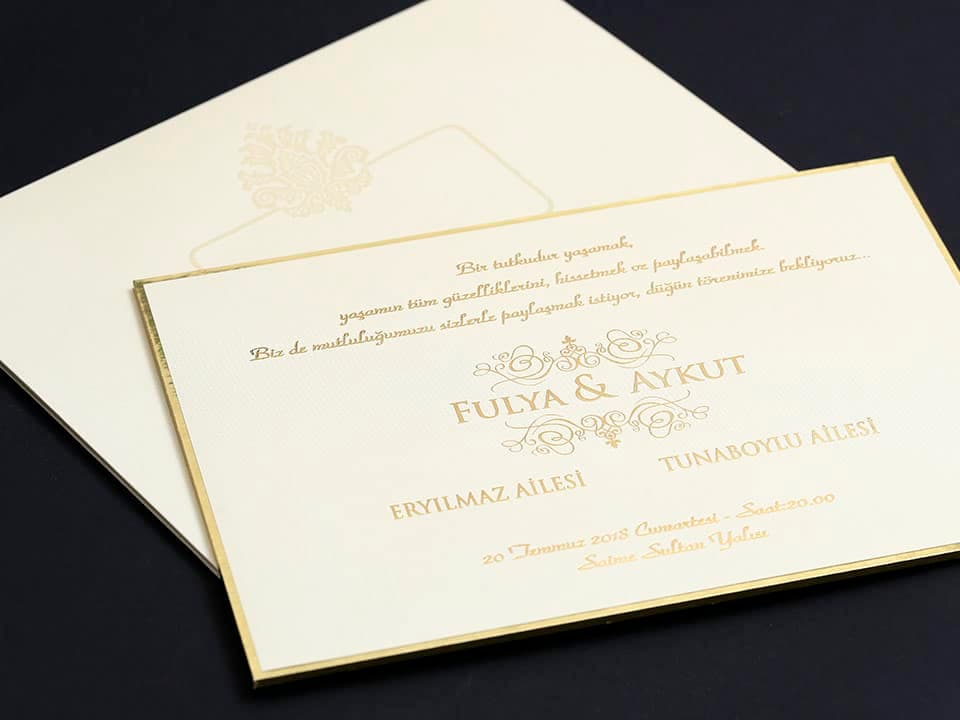 Bir tutkudur yaşamak,
yaşamın tüm güzelliklerini, hissetmek ve paylaşabilmek.
Biz de mutluluğumuzu sizlerle paylaşmak istiyor, düğün törenimize bekliyoruz...
FULYA & AYKUT
ERYILMAZ AİLESİ TUNABOYLU AİLESİ
20 Temmuz 2018 Cumartesi - Saat:20.00
Saime Sultan Yalısı